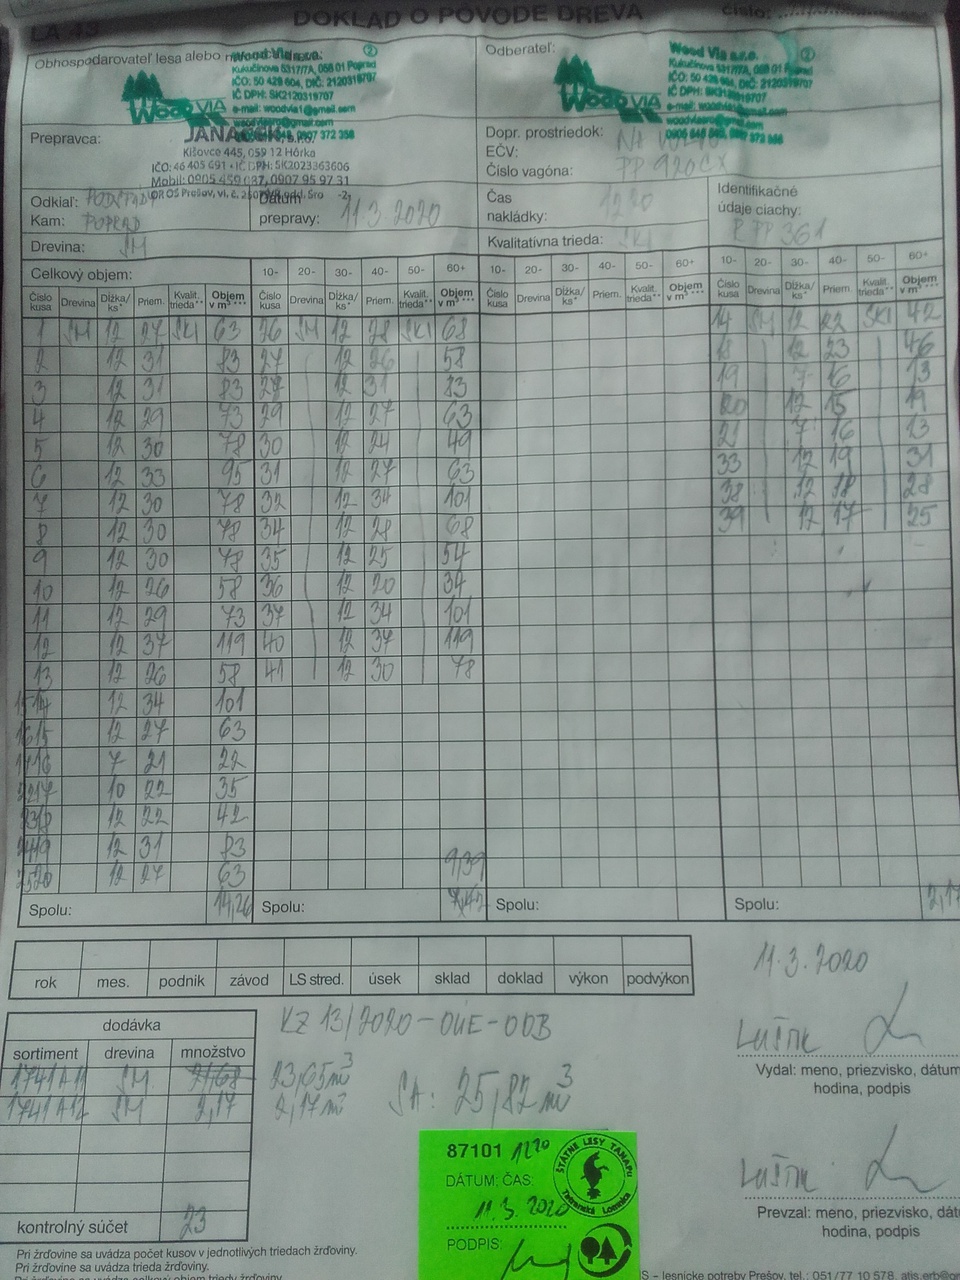 LA 43 DOKLAD O PÔVODE DREVA číslo:
Obhospodarovateľ lesa alebo
Wood Via s.r.o.
Kukučínova 5317/7A, 058 01 Poprad
IČO: 50 429 604, DIČ: 2120319707
IČ DPH: SK2120319707
e-mail: woodvia1@gmail.com
Wood VIA
Odberateľ:
Wood Via s.r.o.
Kukučínova 5317/7A, 058 01 Poprad
IČO: 50 429 604, DIČ: 2120319707
IČ DPH: SK2120319707
Wood VIA
Prepravca:
Kišovce 445, 059 12 Hôrka
IČO: 46 405 691 • IČ DPH: SK2023363606
Mobil: 0905 459 087, 0907 95 97 31
Dopr. prostriedok:
EČV:
Číslo vagóna: PP 920CX
Odkiaľ:
Kam: POPRAD
Dátum
prepravy: 11.3.2020
Čas
nakládky: 1220
Identifikačné
údaje ciachy:
Drevina: SM
Kvalitatívna trieda:
Celkový objem: 10- 20- 30- 40- 50- 60+ 10- 20- 30- 40- 50- 60+ 10- 20- 30- 40- 50- 60+
Číslo kusa Drevina Dĺžka/ks* Priem. Kvalit. trieda** Objem v m³*** Číslo kusa Drevina Dĺžka/ks* Priem. Kvalit. trieda** Objem v m³*** Číslo kusa Drevina Dĺžka/ks* Priem. Kvalit. trieda** Objem v m³*** Číslo kusa Drevina Dĺžka/ks* Priem. Kvalit. trieda** Objem v m³***
1 SM 12 27 SKI 63 26 SM 12 28 SKI 68 14 SM 12 22 SKI 42
2 12 31 83 27 12 26 58 18 12 23 46
3 12 31 83 28 12 31 83 19 7 16 13
4 12 29 73 29 12 27 63 20 12 15 19
5 12 30 78 30 12 24 49 21 7 16 13
6 12 33 95 31 12 27 63 33 12 19 31
7 12 30 78 32 12 34 101 38 12 18 28
8 12 30 78 34 12 28 68 39 12 17 25
9 12 30 78 35 12 25 54
10 12 26 58 36 12 20 34
11 12 29 73 37 12 34 101
12 12 37 119 40 12 37 119
13 12 26 58 41 12 30 78
12 34 101
12 27 63
7 21 22
10 22 35
12 22 42
12 31 83
12 27 63 9,39
Spolu: 14,26 Spolu: Spolu: Spolu: 2,17
rok mes. podnik závod LS stred. úsek sklad doklad výkon podvýkon
11.3.2020
dodávka
KZ 13/2020-OUE-ODB
sortiment drevina množstvo
1741A11 SM 21,68 23,65 m³
1741A12 SM 2,17 2,17 m³
SA: 25,82 m³
Vydal: meno, priezvisko, dátum
hodina, podpis
87101 1220
DÁTUM: ČAS:
11.3.2020
PODPIS:
ŠTÁTNE LESY TANAPu
Tatranská Lomnica
Prevzal: meno, priezvisko, dát
hodina, podpis
kontrolný súčet 23
Pri žrďovine sa uvádza počet kusov v jednotlivých triedach žrďoviny.
Pri žrďovine sa uvádza trieda žrďoviny.
S – lesnícke potreby Prešov, tel.: 051/77 10 578